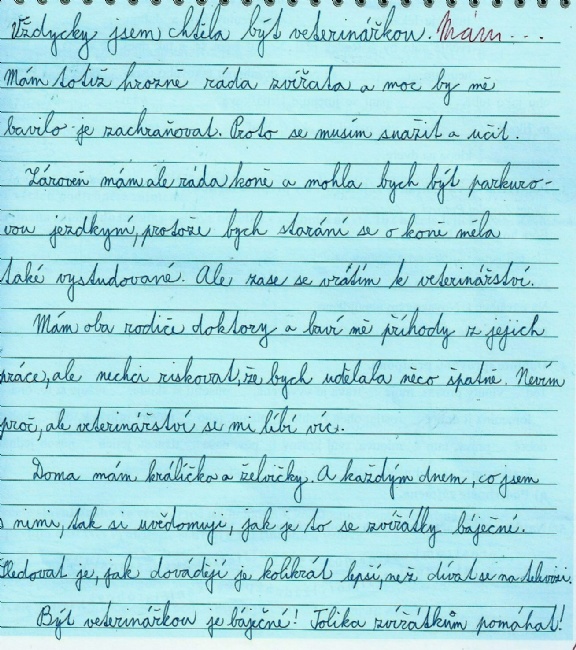 Vždycky jsem chtěla být veterinářkou. Mám...
Mám totiž hrozně ráda zvířata a moc by mě
bavilo je zachraňovat. Proto se musím snažit a učit.
Zároveň mám ale ráda koně a mohla bych být parkuro-
vou jezdkyní, protože bych starání se o koně měla
také vystudované. Ale zase se vrátím k veterinářství.
Mám oba rodiče doktory a baví mě příhody z jejich
práce, ale nechci riskovat, že bych udělala něco špatně. Nevím
proč, ale veterinářství se mi líbí víc.
Doma mám králíčka a želvičky. A každým dnem, co jsem
s nimi, tak si uvědomuji, jak je to se zvířátky báječné.
Sledovat je, jak dovádějí je kolikrát lepší, než dívat se na televizi.
Být veterinářkou je báječné! Tolika zvířátkům pomáhat!